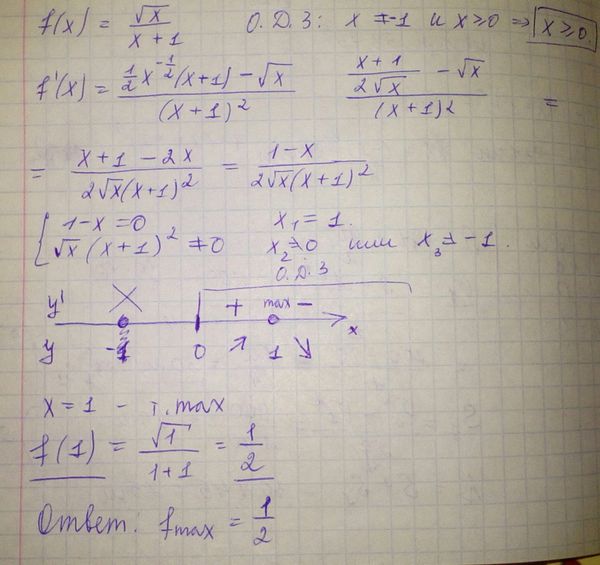 f(x) = √x / (x + 1) О.Д.З: x ≠ -1 и x ≥ 0 ⇒ x ≥ 0.
f'(x) = (1/2 x^(-1/2) (x+1) - √x) / (x+1)^2 ((x+1)/(2√x) - √x) / (x+1)^2 =
= (x+1-2x) / (2√x(x+1)^2) = (1-x) / (2√x(x+1)^2)
{ 1-x = 0 x₁ = 1.
√x (x+1)^2 ≠ 0 x₂ ≠ 0 или x₃ ≠ -1.
О.Д.З
y' + max - x
y -1 0 ↗ 1 ↘
x = 1 - т. max
f(1) = √1 / (1+1) = 1/2
Ответ: fmax = 1/2